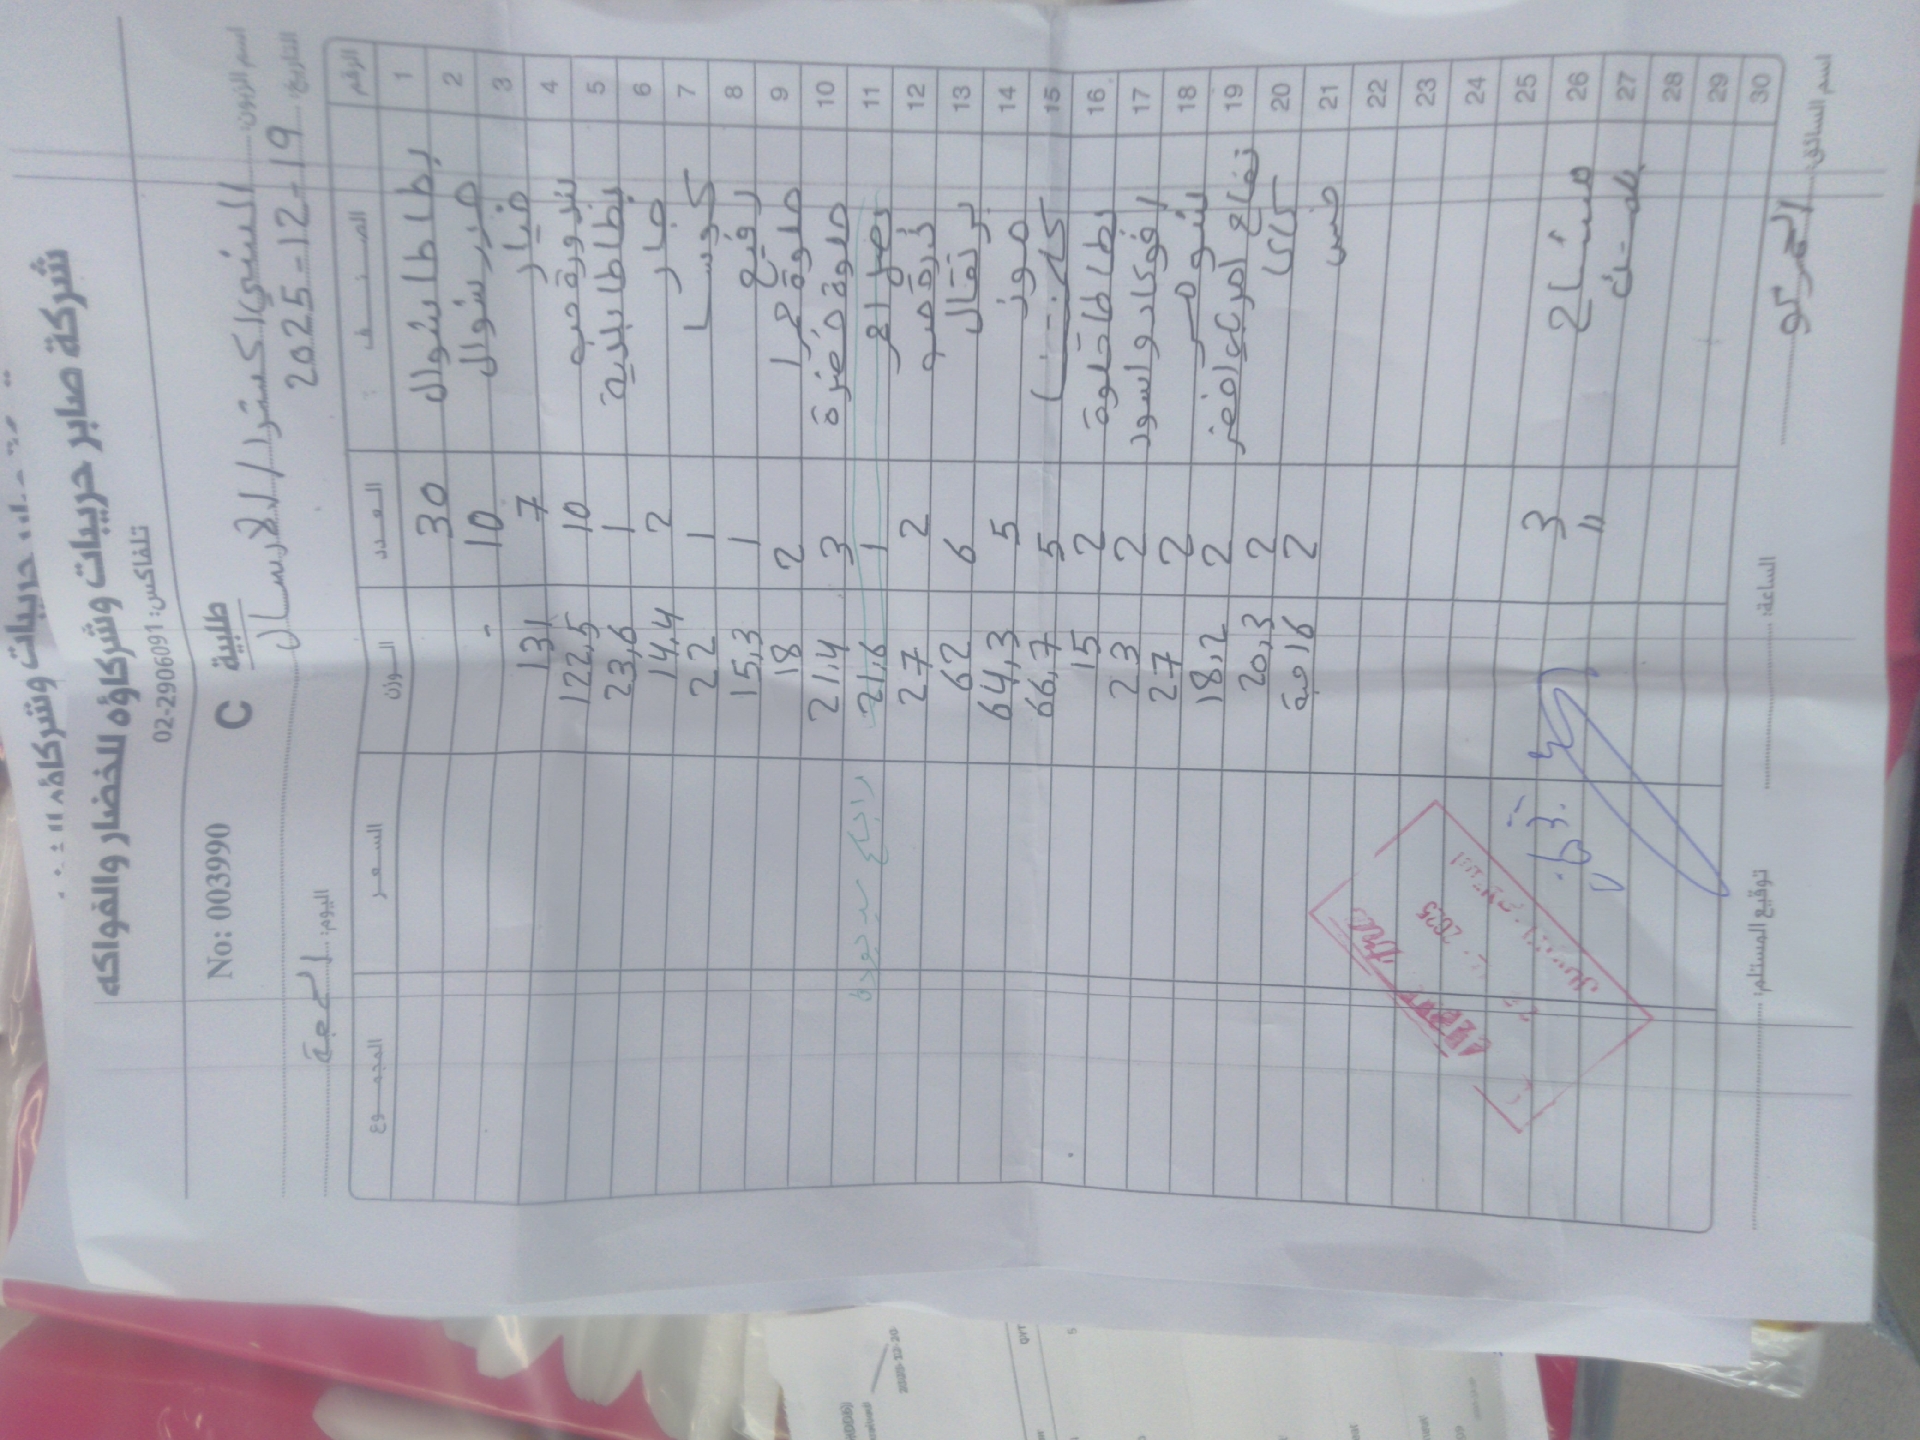 شركة صابر حربيات وشركاؤه للخضار والفواكه
تلفاكس: 02-2906091
No: 003990 C طلبية
اسم الزبون: السني اكسترا / الارسال
التاريخ: 2025-12-19 اليوم: الجمعة
الرقم الصنف العدد الوزن السعر المجموع
1 بطاطا شوال 30
2 جزر شوال 10
3 خيار 7 131
4 بندورة حب 10 122,5
5 بطاطا بلدية 1 23,6
6 خيار 2 14,4
7 كوسا 1 22
8 1 15,3
9 2 18
10 3 21,4
11 1 21,6
12 ذرة حب 2 27
13 برتقال 6 62
14 موز 5 64,3
15 5 66,7
16 بطاطا حلوة 2 15
17 افوكادو اسود 2 23
18 ليمون 2 27
19 تفاح امريكي اخضر 2 18,2
20 كاكا 2 20,3
21 خس 2 16 حبة
22
23
24
25
26 مشتاح 3
27 11
28
29
30
اسم السائق: الساعة: توقيع المستلم:
2025